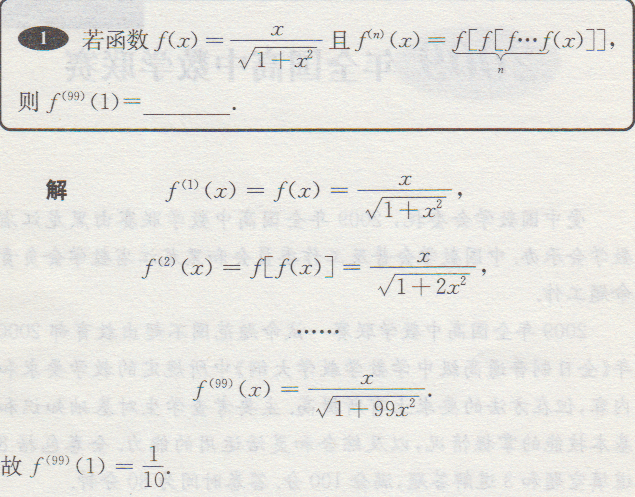 1 若函数 f(x) = x/√(1+x²) 且 f⁽ⁿ⁾(x) = f[f[f⋯f(x)]],
n
则 f⁽⁹⁹⁾(1) = ______.
解 f⁽¹⁾(x) = f(x) = x/√(1+x²),
f⁽²⁾(x) = f[f(x)] = x/√(1+2x²),
……
f⁽⁹⁹⁾(x) = x/√(1+99x²).
故 f⁽⁹⁹⁾(1) = 1/10.